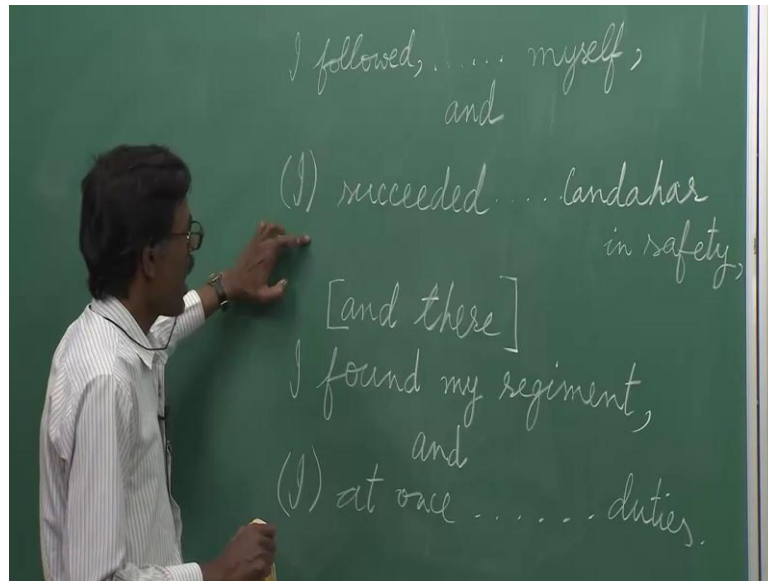 I followed, ...... myself,
and
(I) succeeded .... Candahar
in safety,
[and there]
I found my regiment,
and
(I) at once ....... duties.